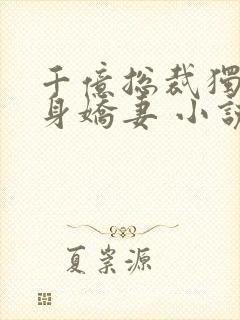 千億總裁獨
身嬌妻 小說
夏崇源